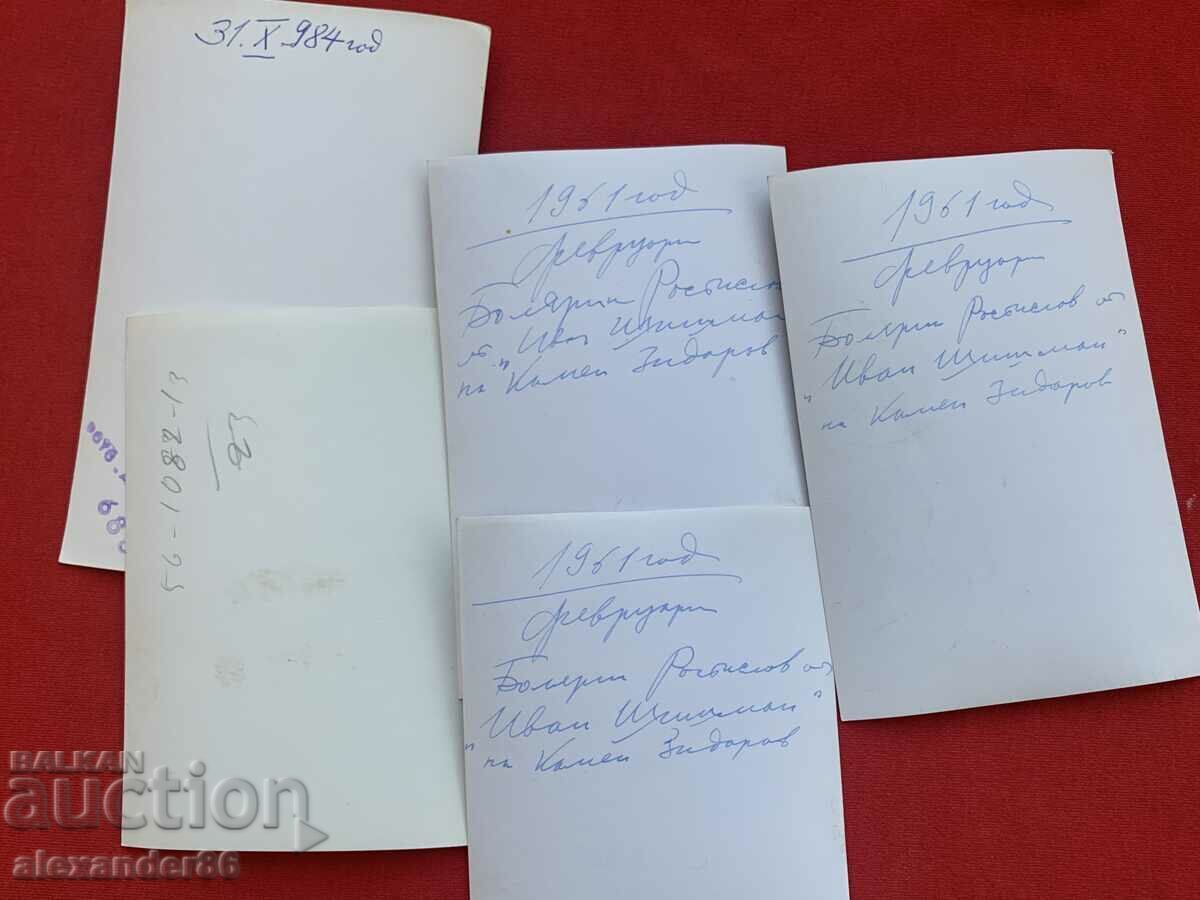 31.X.984 год
1961 год
февруари
Болярин Ростислав
от "Иван Шишман
на Камен Зидаров
1961 год
февруари
Болярин Ростислав от
"Иван Шишман"
на Камен Зидаров
56-1082-13
23
1961 год
февруари
Болярин Ростислав от
"Иван Шишман"
на Камен Зидаров
BALKAN
auction
alexander86